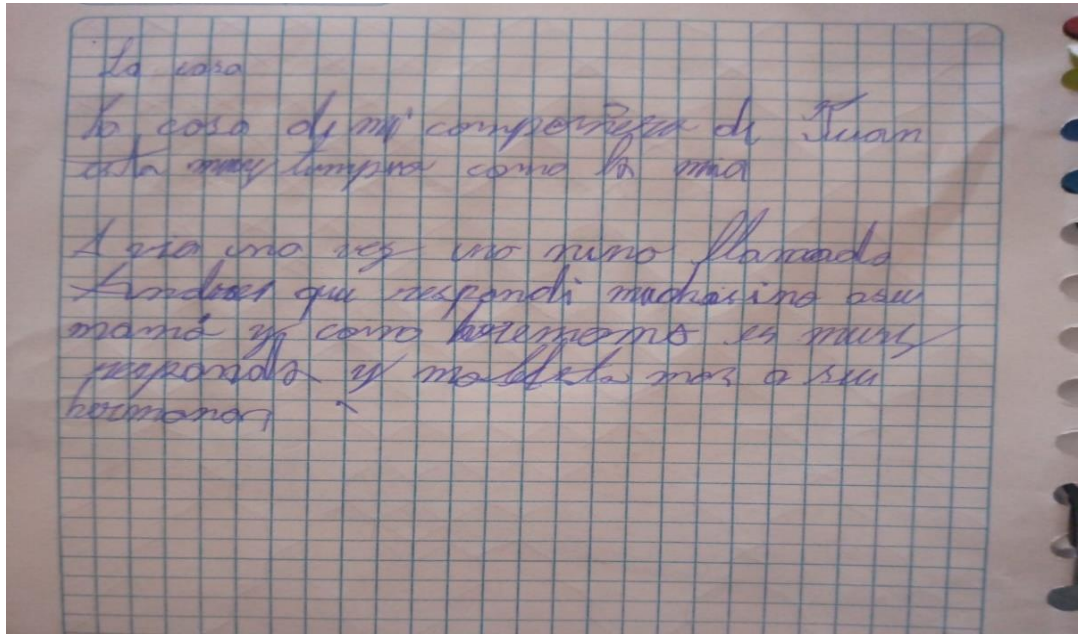 La casa
La casa de mi compañera de Juan
esta muy limpia como la mia
Avia una vez uno nino llamado
Andres que respondi muchosino asu
mamá y como hermano es muy
respondo y mas a su
hermanas